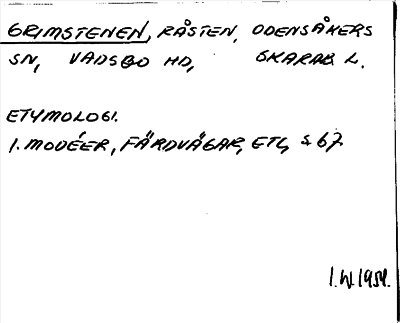 GRIMSTENEN, RÅSTEN, ODENSÅKERS
SN, VADSBO HD, SKARAB. L.
ETYMOLOGI.
1. MODÉER, FÄRDVÄGAR, ETC, S. 67.
I.W. 1954.